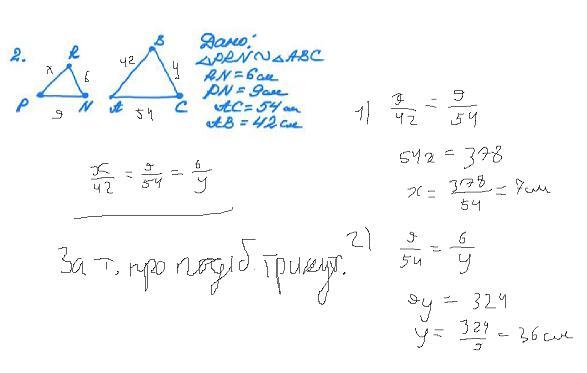 2.
R
x
6
P
9
N
B
42
y
A
54
C
Дано:
△PRN ∾ △ABC
RN = 6см
PN = 9см
AC = 54см
AB = 42см
x/42 = 9/54 = 6/y
За т. про подіб. трикут.
1) x/42 = 9/54
54x = 378
x = 378/54 = 7см
2) 9/54 = 6/y
9y = 324
y = 324/9 = 36см